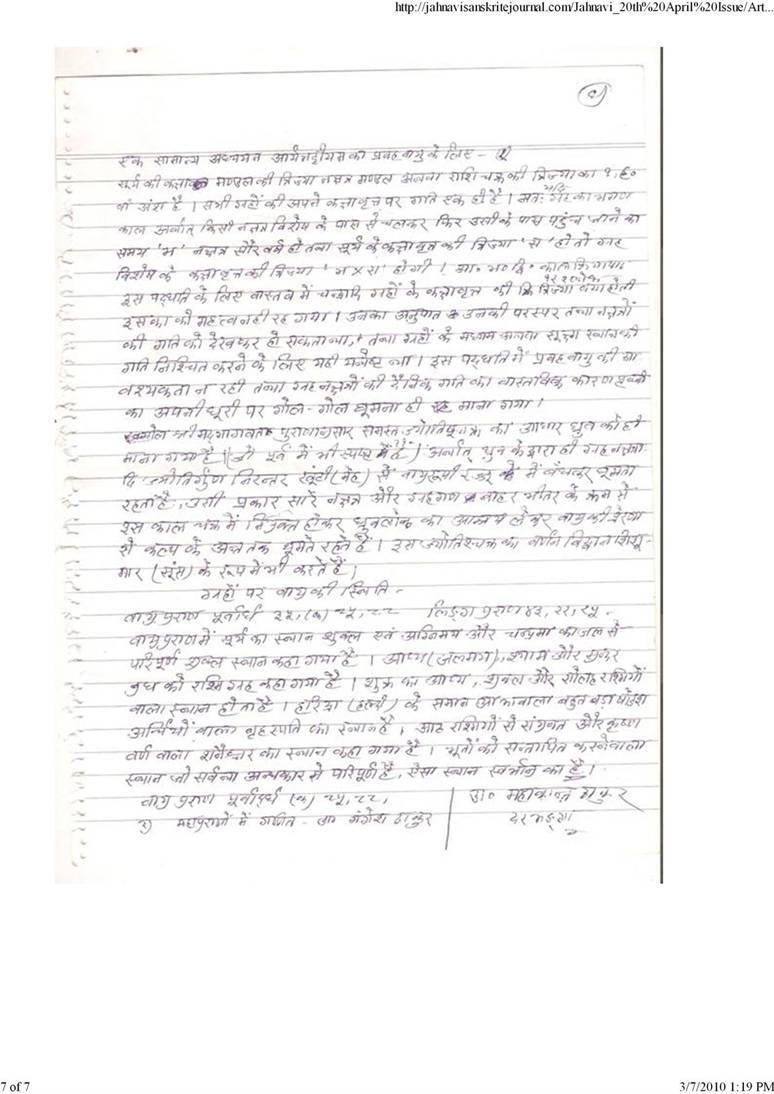 http://jahnavisanskritejournal.com/Jahnavi_20th%20April%20Issue/Art...
एक सामान्य अध्ययन आर्यभट्टीयम का प्रवह वायु के लिए -
सूर्य की कक्षा मण्डल की त्रिज्या नक्षत्र मण्डल अथवा राशि चक्र की त्रिज्या का १/६०
वां अंश है । सभी ग्रहों की अपने कक्षावृत्त पर गति एक ही है । अतः यदि ग्रह का भगण
काल अर्थात् किसी नक्षत्र विशेष के पास से चलकर फिर उसी के पास पहुंच जाने का
समय 'भ' नक्षत्र सौर वर्ष हो तथा सूर्य के कक्षावृत्त की त्रिज्या 'स' हो तो ग्रह
विशेष के कक्षावृत्त की त्रिज्या 'भ x स' होगी ।
इस पद्धति के लिए वास्तव में चन्द्रादि ग्रहों के कक्षावृत्त की त्रिज्या क्या होती
इसका को महत्व नहीं रह गया । उनका अनुपात उनकी परस्पर तथा नक्षत्रों
की गति को देखकर हो सकता था, तथा ग्रहों के मध्यम अथवा स्थान की
गति निश्चित करने के लिए यही यथेष्ट था । इस पद्धति में प्रवह वायु की आ
वश्यकता न रही तथा ग्रह नक्षत्रों की दैनिक गति का वास्तविक कारण पृथ्वी
का अपनी धूरी पर गोल-गोल घूमना ही माना गया ।
श्रीमद्भागवत पुराणानुसार समस्त ज्योतिषचक्र का आधार ध्रुव को ही
माना गया है (जो पूर्व में भी स्पष्ट है) अर्थात् ध्रुव के द्वारा ही ग्रह नक्षत्रा
दि ज्योतिर्गण निरन्तर खूंटी (मेह) से वायुरूपी रज्जू में बंधकर घूमता
रहता है, उसी प्रकार सारे नक्षत्र और ग्रहगण बाहर भीतर के क्रम से
इस काल चक्र में नियुक्त होकर ध्रुवलोक का आश्रय लेकर वायु की प्रेरणा
से कल्प के अन्त तक घूमते रहते हैं । इस ज्योतिश्चक्र का वर्णन विद्वान शिशु-
मार (सूंस) के रूप में भी करते हैं ।
ग्रहों पर वायु की स्थिति -
वायु पुराण पूर्वार्ध लिङ्ग पुराण
वायु पुराण में सूर्य का स्थान शुक्ल एवं अग्निमय और चन्द्रमा का जल से
परिपूर्ण शुक्ल स्थान कहा गया है । आप्य (जलमय), श्याम और
बुध को रश्मि गृह कहा गया है । शुक्र का आप्य, शुक्ल और सोलह रश्मियों
वाला स्थान होता है । हरिद्रा (हल्दी) के समान आभावाला बहुत बड़ा षोडश
अर्चियों वाला बृहस्पति का स्थान है, आठ रश्मियों से संयुक्त और कृष्ण
वर्ण वाला शनैश्चर का स्थान कहा गया है । भूतों को सन्तापित करनेवाला
स्थान जो सर्वथा अन्धकार से परिपूर्ण है, ऐसा स्थान स्वर्भानु का है ।
वायु पुराण पूर्वार्द्ध
महापुराणों में गणित - डा० गंगेश ठाकुर
डा० महाकान्त ठाकुर
दरभङ्गा
7 of 7
3/7/2010 1:19 PM